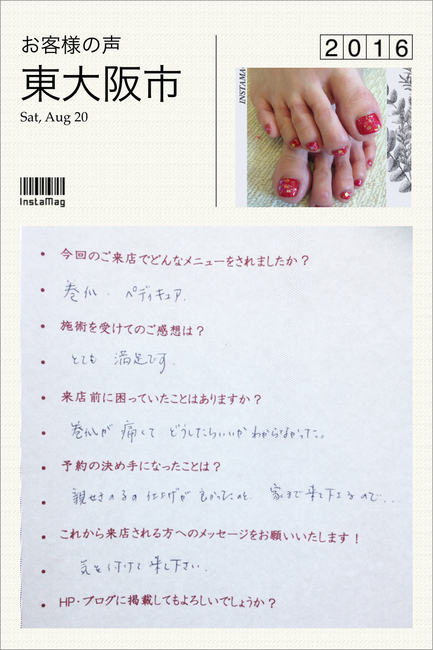 お客様の声
東大阪市
Sat, Aug 20
InstaMag
2016
INSTAMA
今回のご来店でどんなメニューをされましたか？
巻爪．ペディキュア．
施術を受けてのご感想は？
とても 満足です．
来店前に困っていたことはありますか？
巻爪が 痛くて どうしたらいいか わからなかった。
予約の決め手になったことは？
親せきの子の 仕上げが 良かったのと、家まで来て下さるので...
これから来店される方へのメッセージをお願いいたします！
気を付けて 来て下さい．
HP・ブログに掲載してもよろしいでしょうか？